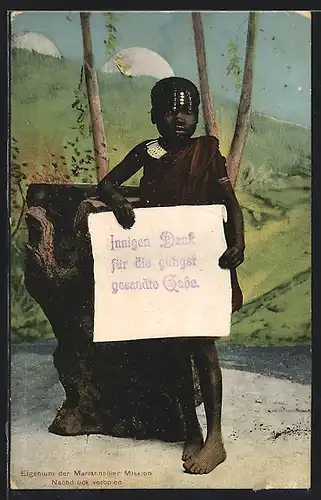 Innigen Dank
für die gütigst
gesandte Gabe.
Eigentum der Mariannhiller Mission
Nachdruck verboten